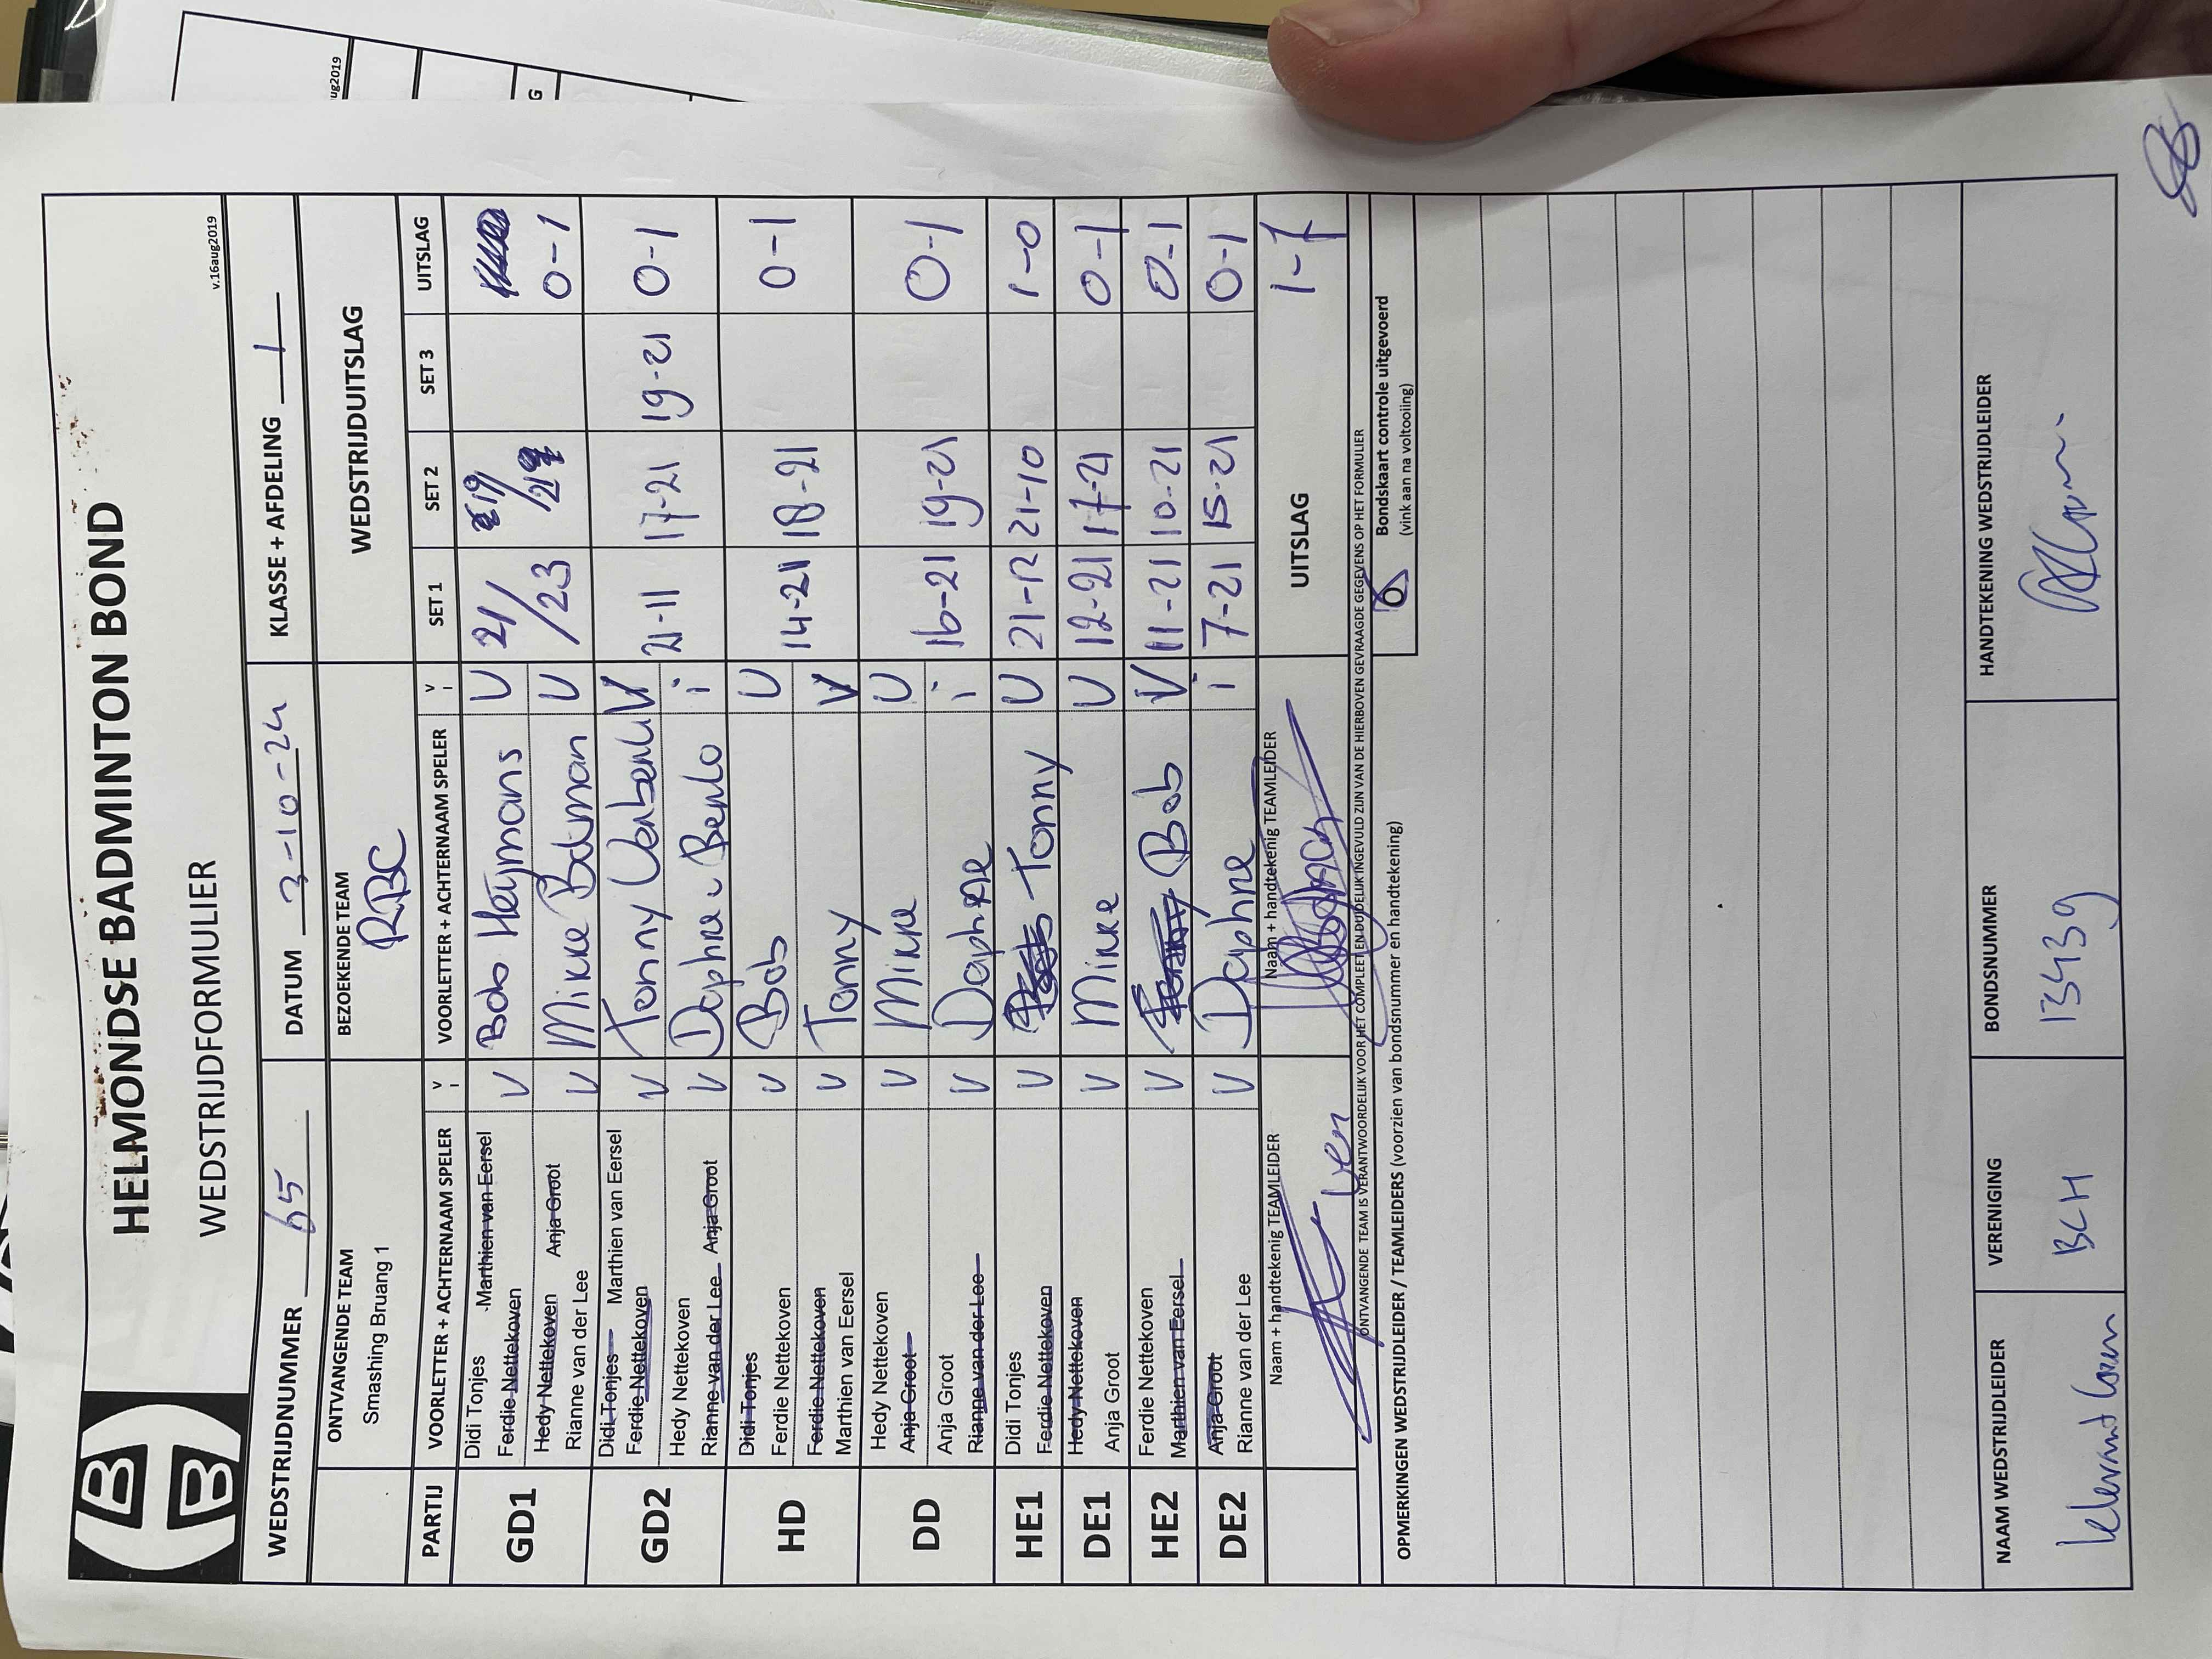 HELMONDSE BADMINTON BOND
WEDSTRIJDFORMULIER
v.16aug2019
WEDSTRIJDNUMMER 65 DATUM 3-10-24 KLASSE + AFDELING 1
ONTVANGENDE TEAM BEZOEKENDE TEAM WEDSTRIJDUITSLAG
Smashing Bruang 1 RBC
PARTIJ VOORLETTER + ACHTERNAAM SPELER V I VOORLETTER + ACHTERNAAM SPELER V I SET 1 SET 2 SET 3 UITSLAG
GD1
Didi Tonjes Marthien van Eersel V Bob Heijmans V 21/23 19/21 0-1
Ferdie Nettekoven
Hedy Nettekoven Anja Groot V Mikke V
Rianne van der Lee
GD2
Didi Tonjes Marthien van Eersel V Tonny V 21-11 17-21 19-21 0-1
Ferdie Nettekoven
Hedy Nettekoven V Daphne v. Benlo i
Rianne van der Lee Anja Groot
HD
Didi Tonjes V Bob V 14-21 18-21 0-1
Ferdie Nettekoven
Ferdie Nettekoven V Tonny V
Marthien van Eersel
DD
Hedy Nettekoven V Mikke V 16-21 19-21 0-1
Anja Groot
Anja Groot V Daphne i
Rianne van der Lee
HE1
Didi Tonjes V Tonny V 21-12 21-10 1-0
Ferdie Nettekoven
DE1
Hedy Nettekoven V Mikke V 12-21 17-21 0-1
Anja Groot
HE2
Ferdie Nettekoven V Bob V 11-21 10-21 0-1
Marthien van Eersel
DE2
Anja Groot V Daphne i 7-21 15-21 0-1
Rianne van der Lee
Naam + handtekenig TEAMLEIDER Naam + handtekenig TEAMLEIDER UITSLAG 1-7
ONTVANGENDE TEAM IS VERANTWOORDELIJK VOOR HET COMPLEET EN DUIDELIJK INGEVULD ZIJN VAN DE HIERBOVEN GEVRAAGDE GEGEVENS OP HET FORMULIER
Bondskaart controle uitgevoerd
(vink aan na voltooiing)
OPMERKINGEN WEDSTRIJDLEIDER / TEAMLEIDERS (voorzien van bondsnummer en handtekening)
NAAM WEDSTRIJDLEIDER VERENIGING BONDSNUMMER HANDTEKENING WEDSTRIJDLEIDER
BCH 13439
ug2019
G